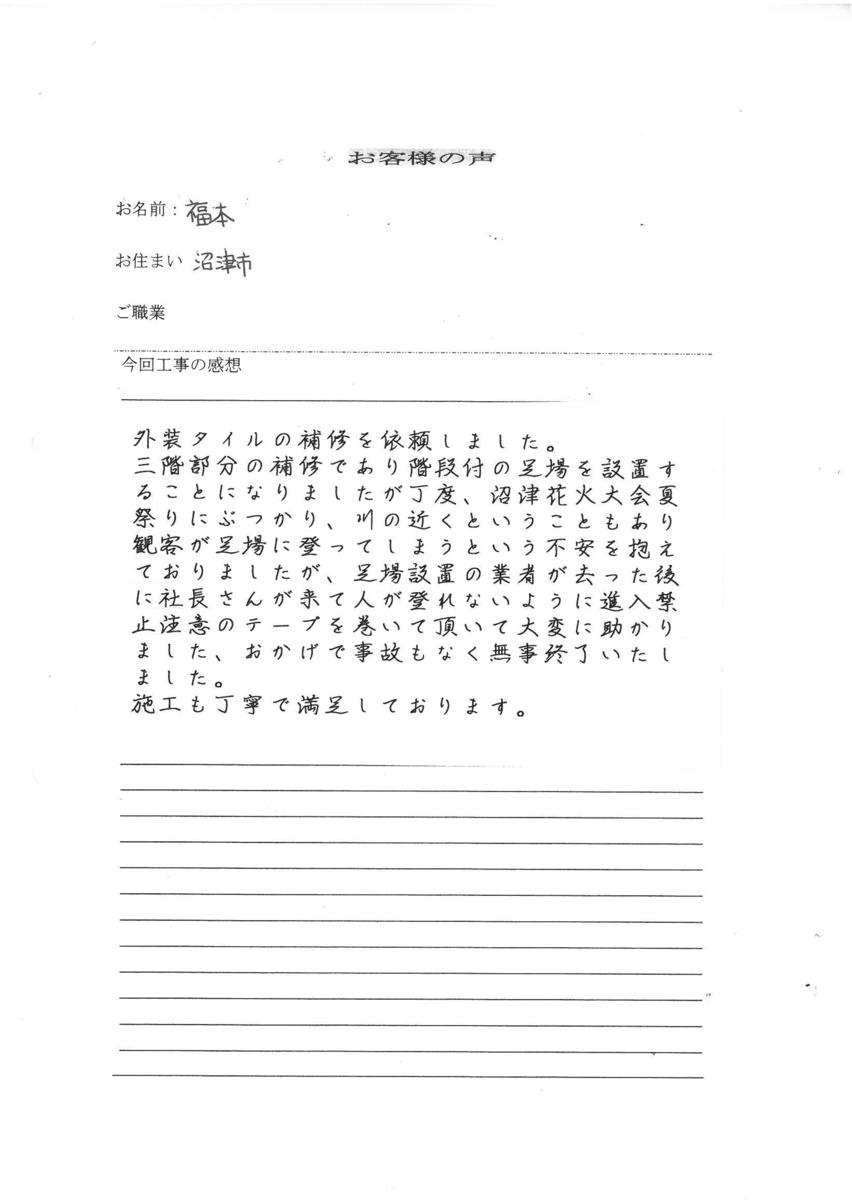 お客様の声
お名前：福本
お住まい 沼津市
ご職業
今回工事の感想
外装タイルの補修を依頼しました。
三階部分の補修であり階段付の足場を設置す
ることになりましたが丁度、沼津花火大会夏
祭りにぶつかり、川の近くということもあり
観客が足場に登ってしまうという不安を抱え
ておりましたが、足場設置の業者が去った後
に社長さんが来て人が登れないように進入禁
止注意のテープを巻いて頂いて大変に助かり
ました、おかげで事故もなく無事終了いたし
ました。
施工も丁寧で満足しております。